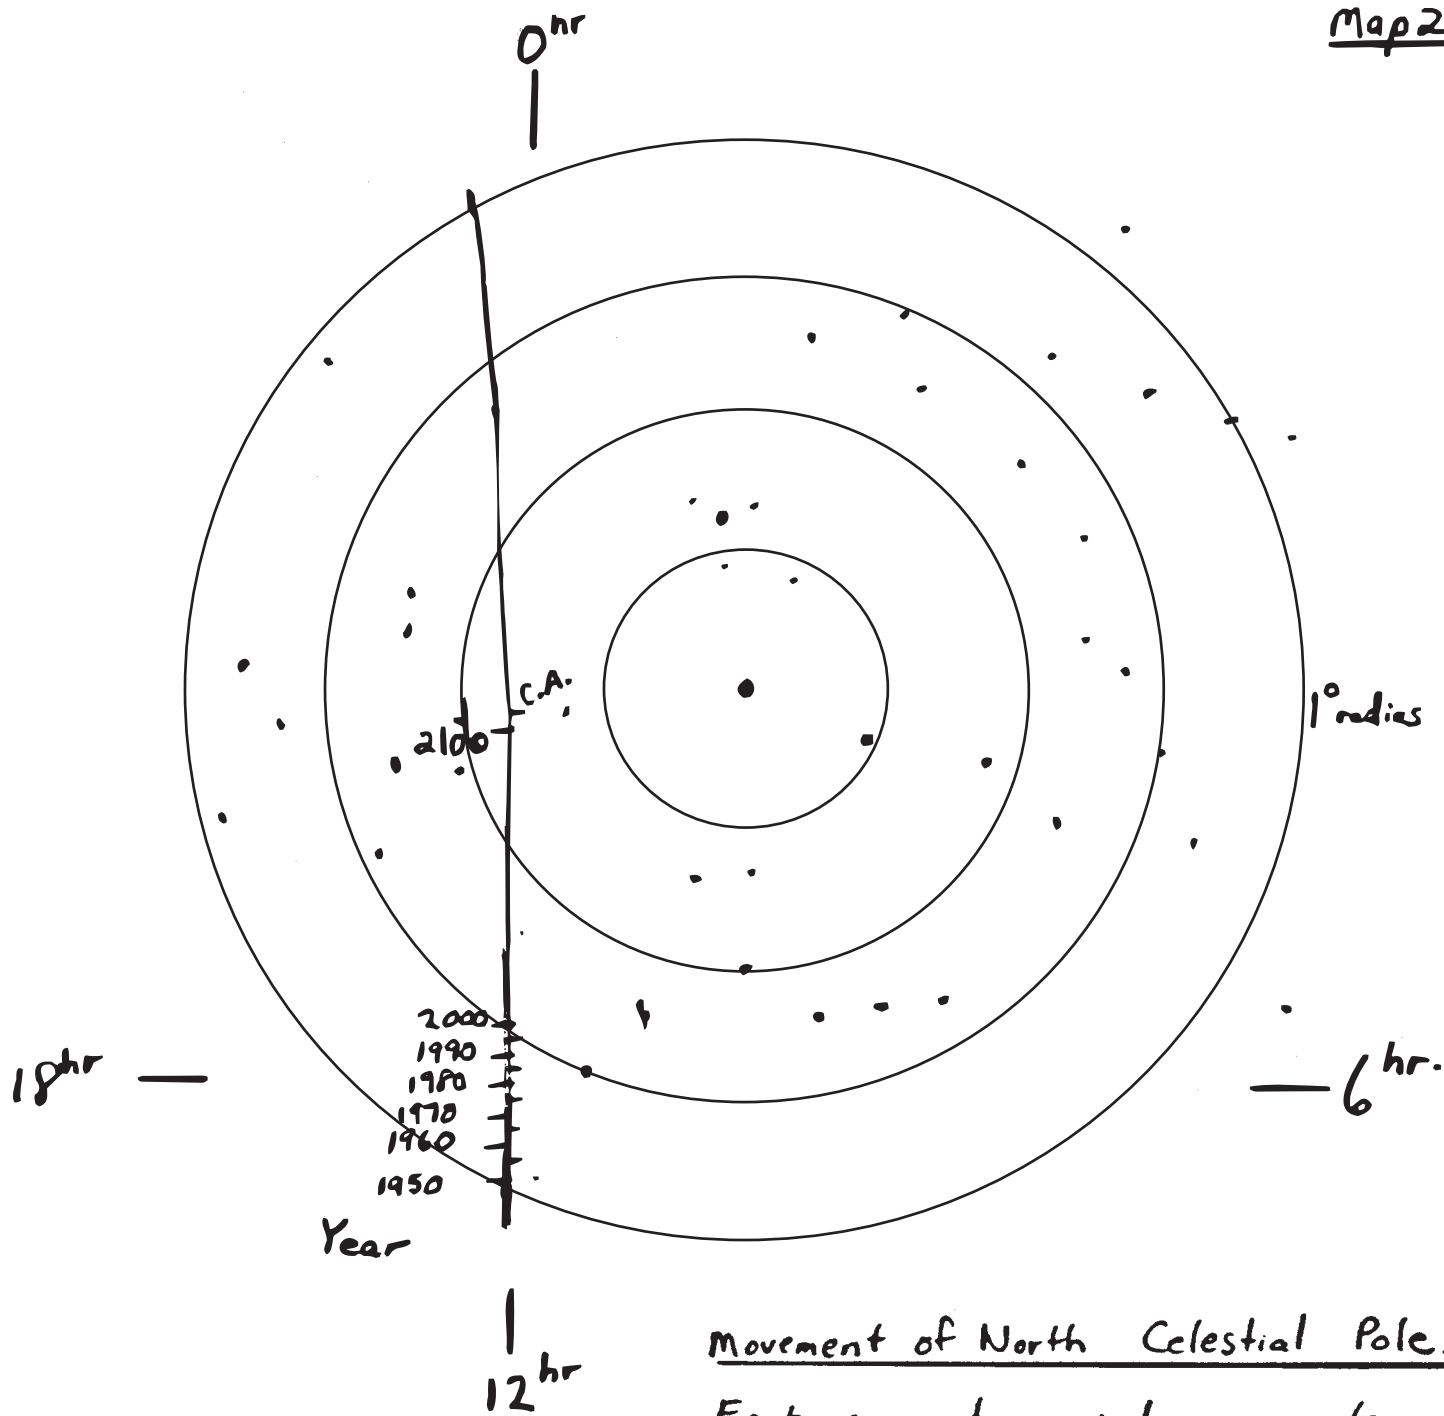 Map 2
0 hr
C.A.
2100
1° radius
2000
1990
1980
1970
1960
1950
Year
18 hr
6 hr.
12 hr
Movement of North Celestial Pole.